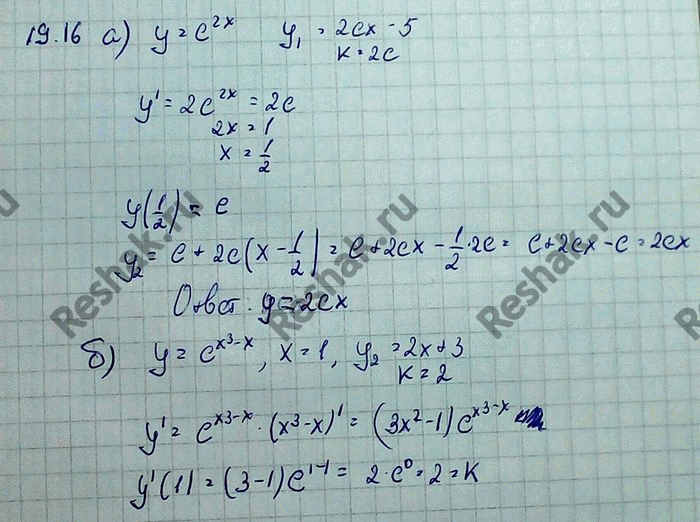 19.16 а) y = e^{2x} y₁ = 2ex - 5
k = 2e
y' = 2e^{2x} = 2e
2x = 1
x = 1/2
y(1/2) = e
y₂ = e + 2e(x - 1/2) = e + 2ex - 1/2 · 2e = e + 2ex - e = 2ex
Ответ: y = 2ex
б) y = e^{x3-x}, x = 1, y₂ = 2x + 3
k = 2
y' = e^{x3-x} · (x³-x)' = (3x²-1) e^{x3-x}
y'(1) = (3-1) e^{1-1} = 2 · e⁰ = 2 = k
Reshak.ru
Reshak.ru
Reshak.ru